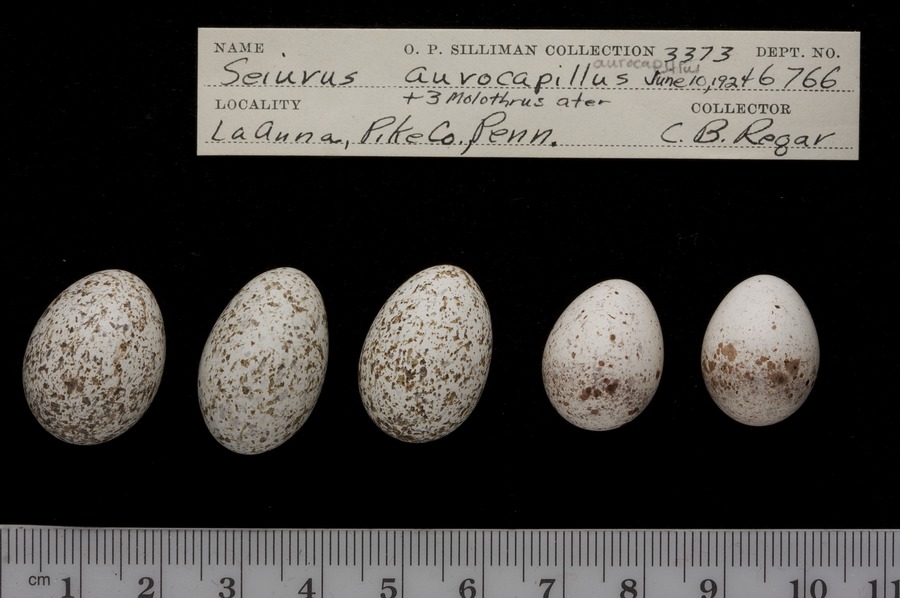 NAME O. P. SILLIMAN COLLECTION 3373 DEPT. NO.
aurocapillus
Seiurus aurocapillus June 10, 1924 6766
+ 3 Molothrus ater
LOCALITY COLLECTOR
La Anna, Pike Co. Penn. C. B. Regar
cm 1 2 3 4 5 6 7 8 9 10 11